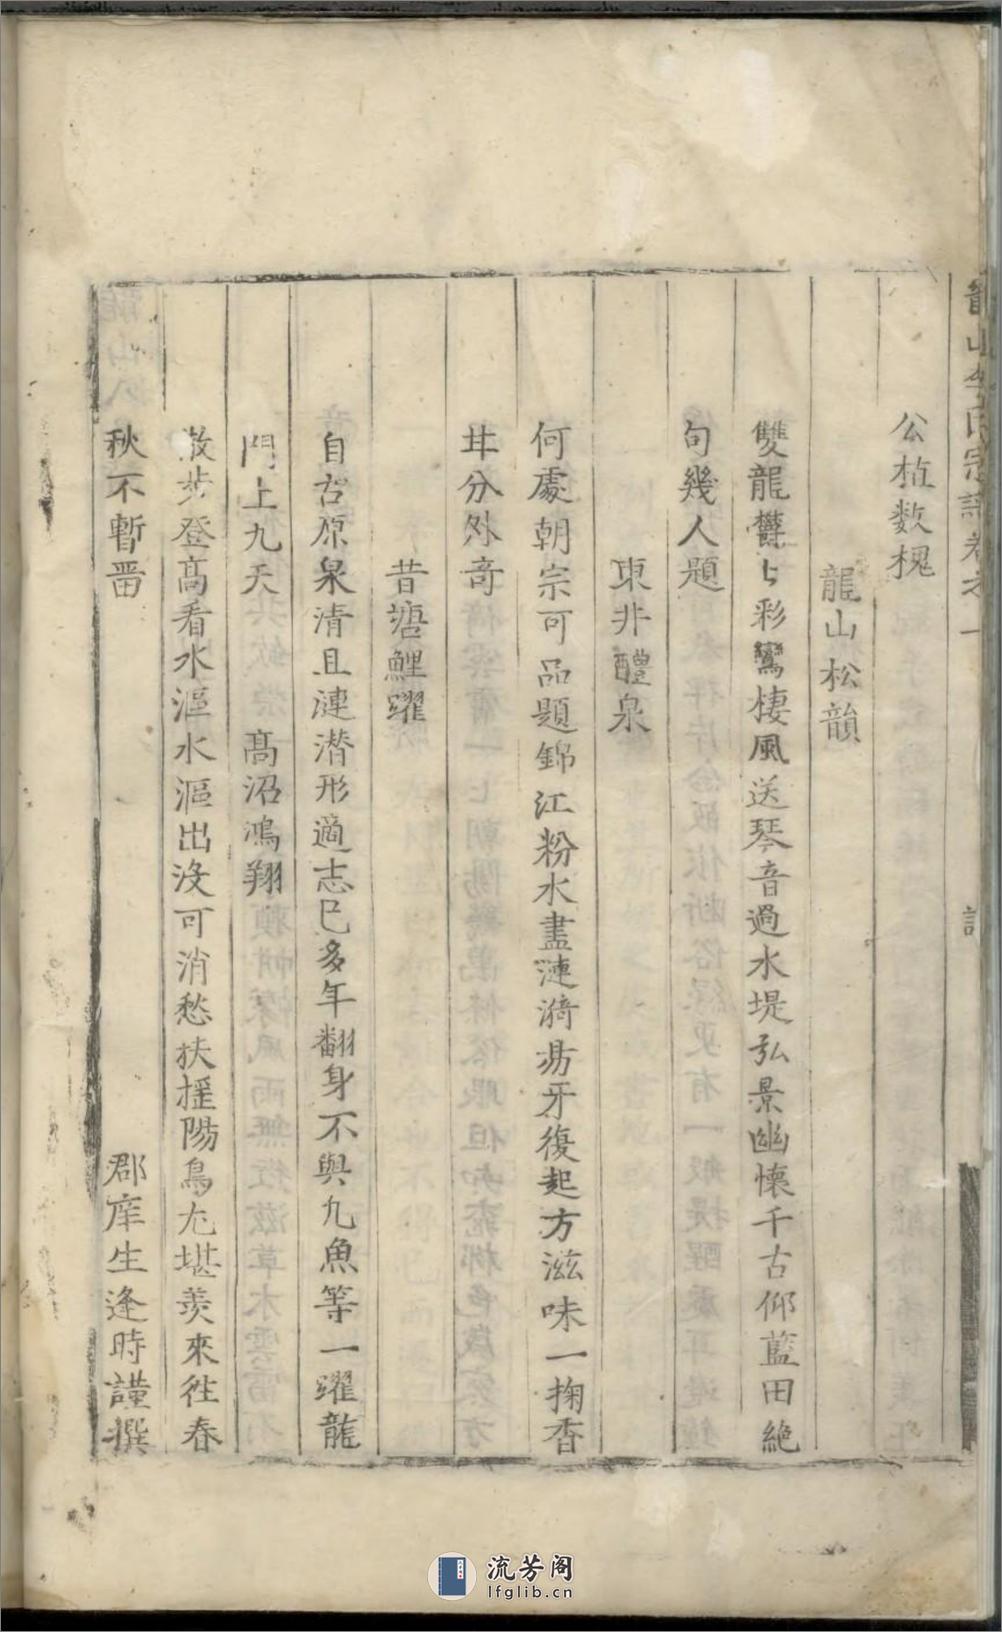 龍山李氏宗譜卷之一
公植数槐
龍山松韻
雙龍欝欝彩鸞棲風送琴音過水堤弘景幽懷千古仰藍田絶
句幾人題
東井醴泉
何處朝宗可品題錦江粉水盡漣漪昜牙復起方滋味一掬香
甘分外竒
昔塘鯉躍
自古原泉清且漣潜形適志已多年翻身不與九魚等一躍龍
門上九天
髙沼鴻翔
散步登髙看水漚水漚出没可消愁扶揺陽鳥尤堪羨來徃春
秋不暫畱
郡庠生逢時謹撰
流芳阁
lfglib.cn